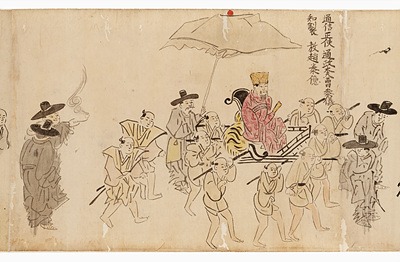 通信正使 通政吏曹參議
知製 教 趙泰億